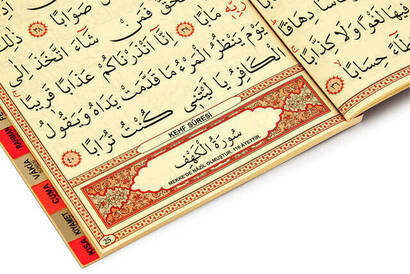 صَوَابًا
فَمَنْ شَٓاءَ اتَّخَذَ اِلٰى
مَاٰبًا ﴿٣٩﴾ اِنَّٓا اَنْذَرْنَاكُمْ عَذَابًا قَر۪يبًا
يَوْمَ يَنْظُرُ الْمَرْءُ مَا قَدَّمَتْ يَدَاهُ وَيَقُولُ
الْكَافِرُ يَا لَيْتَن۪ي كُنْتُ تُرَابًا ﴿٤٠﴾
KEHF SÛRESİ
سُورَةُ الْكَهْفِ
MEKKE'DE NÂZİL OLMUŞTUR, 110 ÂYETTİR.
25
دِهَاقًا
ف۪يهَا لَغْوًا وَلَا كِذَّابًا
حِسَابًا ﴿٣٦﴾
VAKIA
CUMA
KIYAMET
KISA